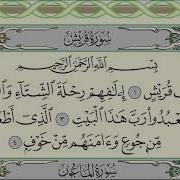 سُورَةُ قُرَيْشٍ
بِسْمِ ٱللَّهِ ٱلرَّحْمَٰنِ ٱلرَّحِيمِ
قُرَيْشٍ ١ إِۦلَٰفِهِمْ رِحْلَةَ ٱلشِّتَآءِ وَٱل
عْبُدُوا۟ رَبَّ هَٰذَا ٱلْبَيْتِ ٣ ٱلَّذِىٓ أَطْ
مِّن جُوعٍ وَءَامَنَهُم مِّنْ خَوْفٍۭ ٤
سُورَةُ ٱلْمَاعُونِ